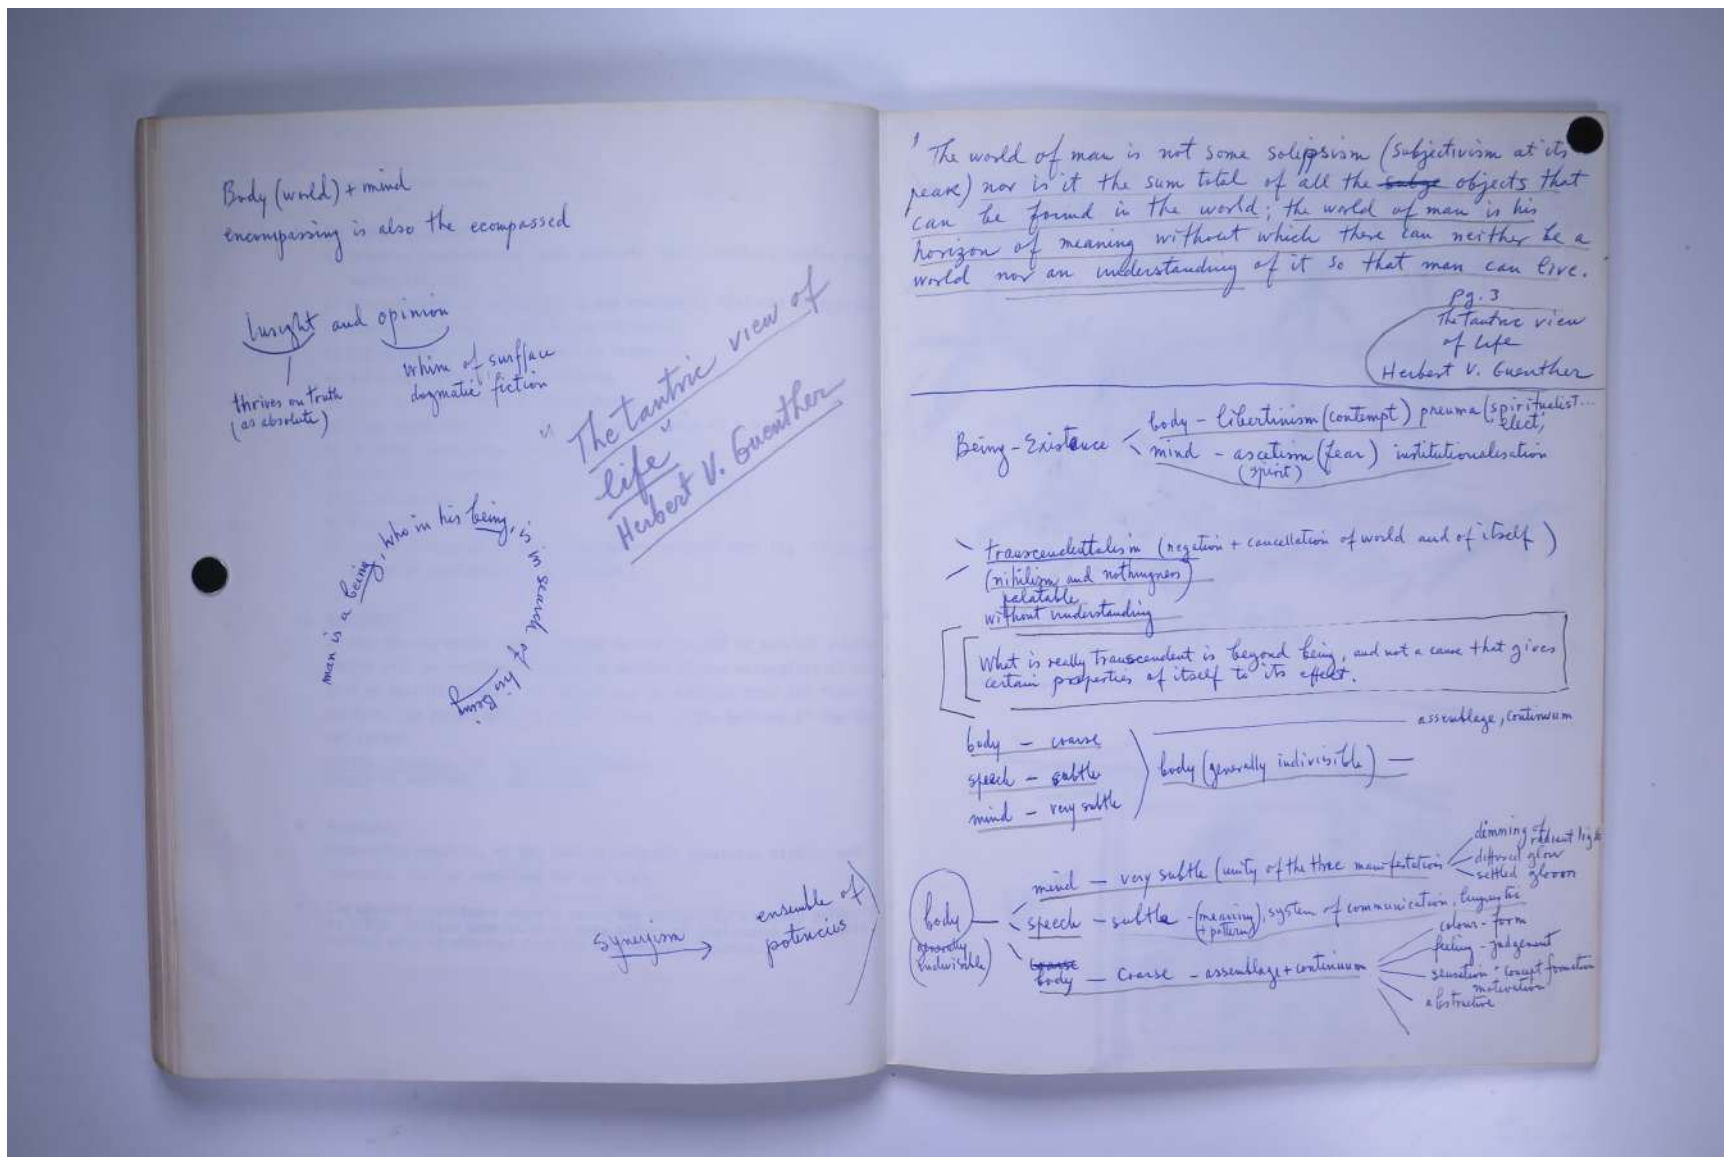 Body (world) + mind
encompassing is also the ecompassed
Insight and opinion
thrives on truth
(as absolute)
whim of surfface
dogmatic fiction
"The tantric view of
life"
Herbert V. Guenther
man is a being, who in his being, is in search of his Being.
synergism →
ensemble of
potencies
' The world of man is not some solippsism (subjectivism at its
peak) nor is it the sum total of all the subje objects that
can be found in the world; the world of man is his
horizon of meaning without which there can neither be a
world nor an understanding of it so that man can live.
Pg. 3
The tantric view
of life
Herbert V. Guenther
Being-Existence
body - libertinism (contempt) pneuma (spiritualist...
elect,
mind - ascetism (fear) institutionalisation
(spirit)
transcendentalism (negation + cancellation of world and of itself)
(nihilism and nothingness)
palatable
without understanding
What is really transcendent is beyond being, and not a cause that gives
certain properties of itself to its effect.
assemblage, continuum
body - coarse
speech - subtle
mind - very subtle
body (generally indivisible) -
body
(generally
indivisible)
mind - very subtle (unity of the three manifestation
dimming of
radient light
diffused glow
settled gloom
speech - subtle - (meaning), system of communication, linguistic
coarse
body - coarse - assemblage + continuum
colour - form
feeling - judgement
sensation - concept formation
motivation